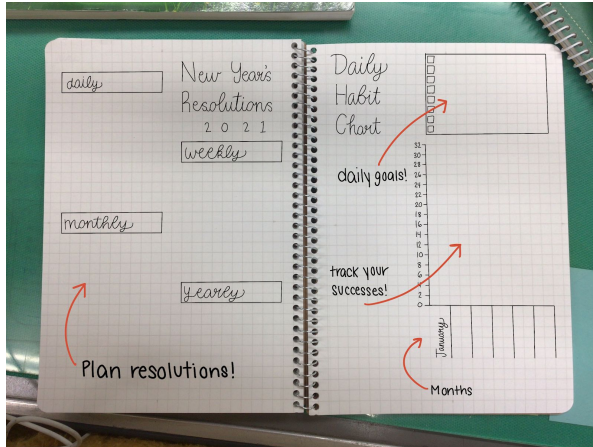 New Year's
Resolutions
2021
daily
weekly
monthly
yearly
Plan resolutions!
Daily
Habit
Chart
daily goals!
32
30
28
26
24
22
20
18
16
14
12
10
8
6
4
2
0
track your
successes!
January
Months